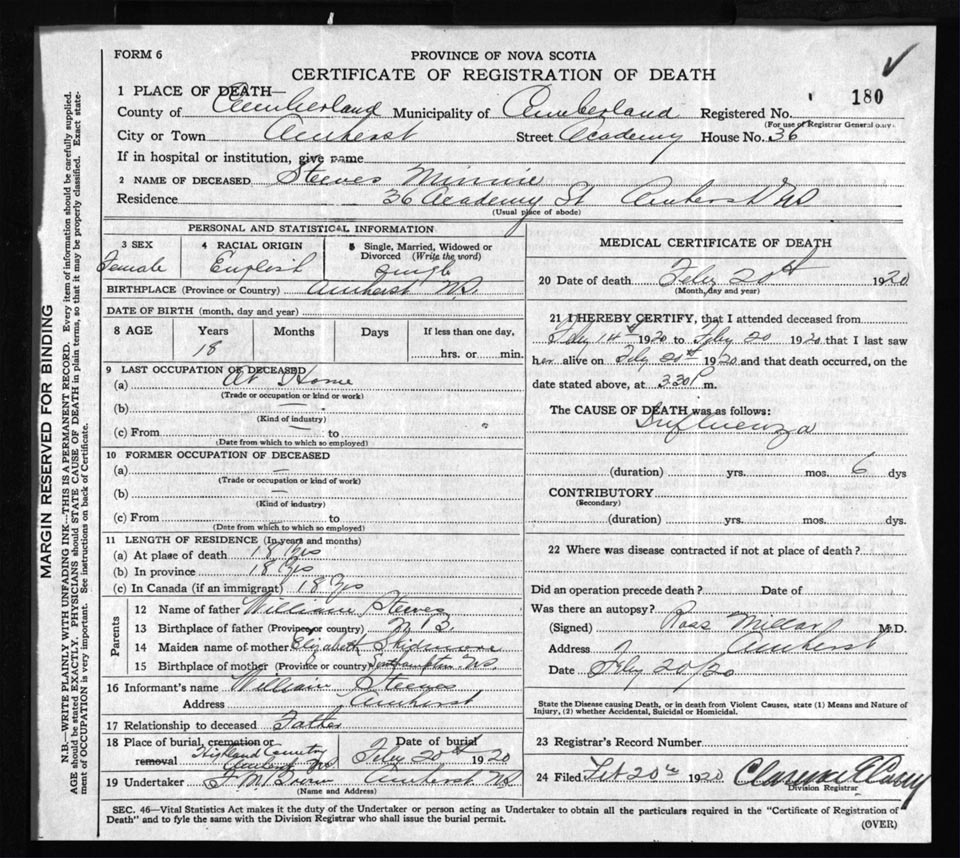 FORM 6
PROVINCE OF NOVA SCOTIA
CERTIFICATE OF REGISTRATION OF DEATH
180
1 PLACE OF DEATH—
County of Cumberland Municipality of Cumberland Registered No.
(For use of Registrar General only.)
City or Town Amherst Street Academy House No. 36
If in hospital or institution, give name
2 NAME OF DECEASED Steeves Minnie
Residence 36 Academy St Amherst NS
(Usual place of abode)
PERSONAL AND STATISTICAL INFORMATION
3 SEX Female
4 RACIAL ORIGIN English
5 Single, Married, Widowed or Divorced (Write the word) Single
BIRTHPLACE (Province or Country) Amherst N.S.
DATE OF BIRTH (month, day and year)
8 AGE Years Months Days If less than one day,
18 hrs. or min.
9 LAST OCCUPATION OF DECEASED
(a) At Home
(Trade or occupation or kind or work)
(b) —
(Kind of industry)
(c) From — to
(Date from which to which so employed)
10 FORMER OCCUPATION OF DECEASED
(a) —
(Trade or occupation or kind of work)
(b) —
(Kind of industry)
(c) From — to
(Date from which to which so employed)
11 LENGTH OF RESIDENCE (In years and months)
(a) At place of death 18 Yrs
(b) In province 18 Yrs
(c) In Canada (if an immigrant) 18 Yrs
Parents
12 Name of father William Steeves
13 Birthplace of father (Province or country) N B.
14 Maiden name of mother Elizabeth Skidmore
15 Birthplace of mother (Province or country) N.S.
16 Informant's name William Steeves
Address Amherst
17 Relationship to deceased Father
18 Place of burial, cremation or removal Highland Cemetery Amherst NS
Date of burial Feby 20th 1920
19 Undertaker Amherst NS
(Name and Address)
MEDICAL CERTIFICATE OF DEATH
20 Date of death Feby 20th 1920
(Month, day and year)
21 I HEREBY CERTIFY, that I attended deceased from
Feby 14th 1920 to Feby 20 1920 that I last saw
her alive on Feby 20th 1920 and that death occurred, on the
date stated above, at 3.30 P m.
The CAUSE OF DEATH was as follows:
Influenza
(duration) yrs. mos. 6 dys
CONTRIBUTORY
(Secondary)
(duration) yrs. mos. dys.
22 Where was disease contracted if not at place of death?
Did an operation precede death? Date of
Was there an autopsy?
(Signed) Ross Millar M.D.
Address Amherst
Date Feby 20/20
State the Disease causing Death, or in death from Violent Causes, state (1) Means and Nature of
Injury, (2) whether Accidental, Suicidal or Homicidal.
23 Registrar's Record Number
24 Filed Feb 20th 1920
Division Registrar
SEC. 46—Vital Statistics Act makes it the duty of the Undertaker or person acting as Undertaker to obtain all the particulars required in the "Certificate of Registration of
Death" and to fyle the same with the Division Registrar who shall issue the burial permit.
(OVER)
MARGIN RESERVED FOR BINDING
N.B.—WRITE PLAINLY WITH UNFADING INK—THIS IS A PERMANENT RECORD. Every item of information should be carefully supplied.
AGE should be stated EXACTLY. PHYSICIANS should STATE CAUSE OF DEATH in plain terms, so that it may be properly classified. Exact state-
ment of OCCUPATION is very important. See instructions on back of Certificate.